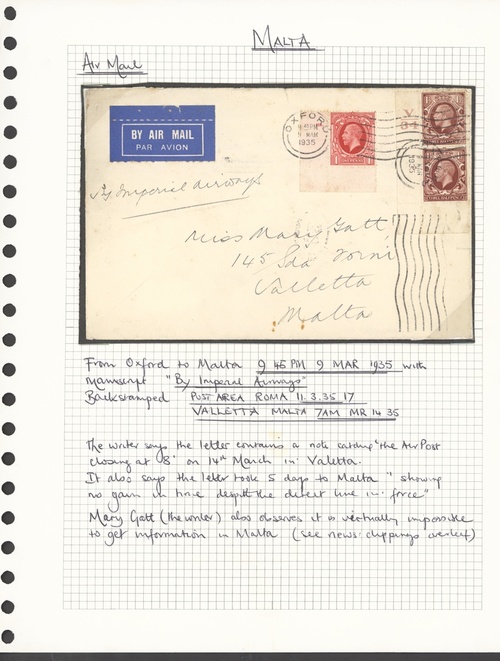 MALTA
Air Mail
BY AIR MAIL
PAR AVION
OXFORD
9 MAR
1935
By Imperial Airways
Miss Mary Gatt
145
Valletta
Malta
From Oxford to Malta 9 45 PM 9 MAR 1935 with
manuscript "By Imperial Airways"
Backstamped POST AREA ROMA 11.3.35 17
VALLETTA MALTA 7AM MR 14 35
The writer says the letter contains a note "the Air Post
closing at 8" on 14th March in Valetta.
It also says the letter took 5 days to Malta "showing
no gain in time despite the direct line in force"
Mary Gatt (the writer) also observes it is virtually impossible
to get information in Malta (see news clippings overleaf)